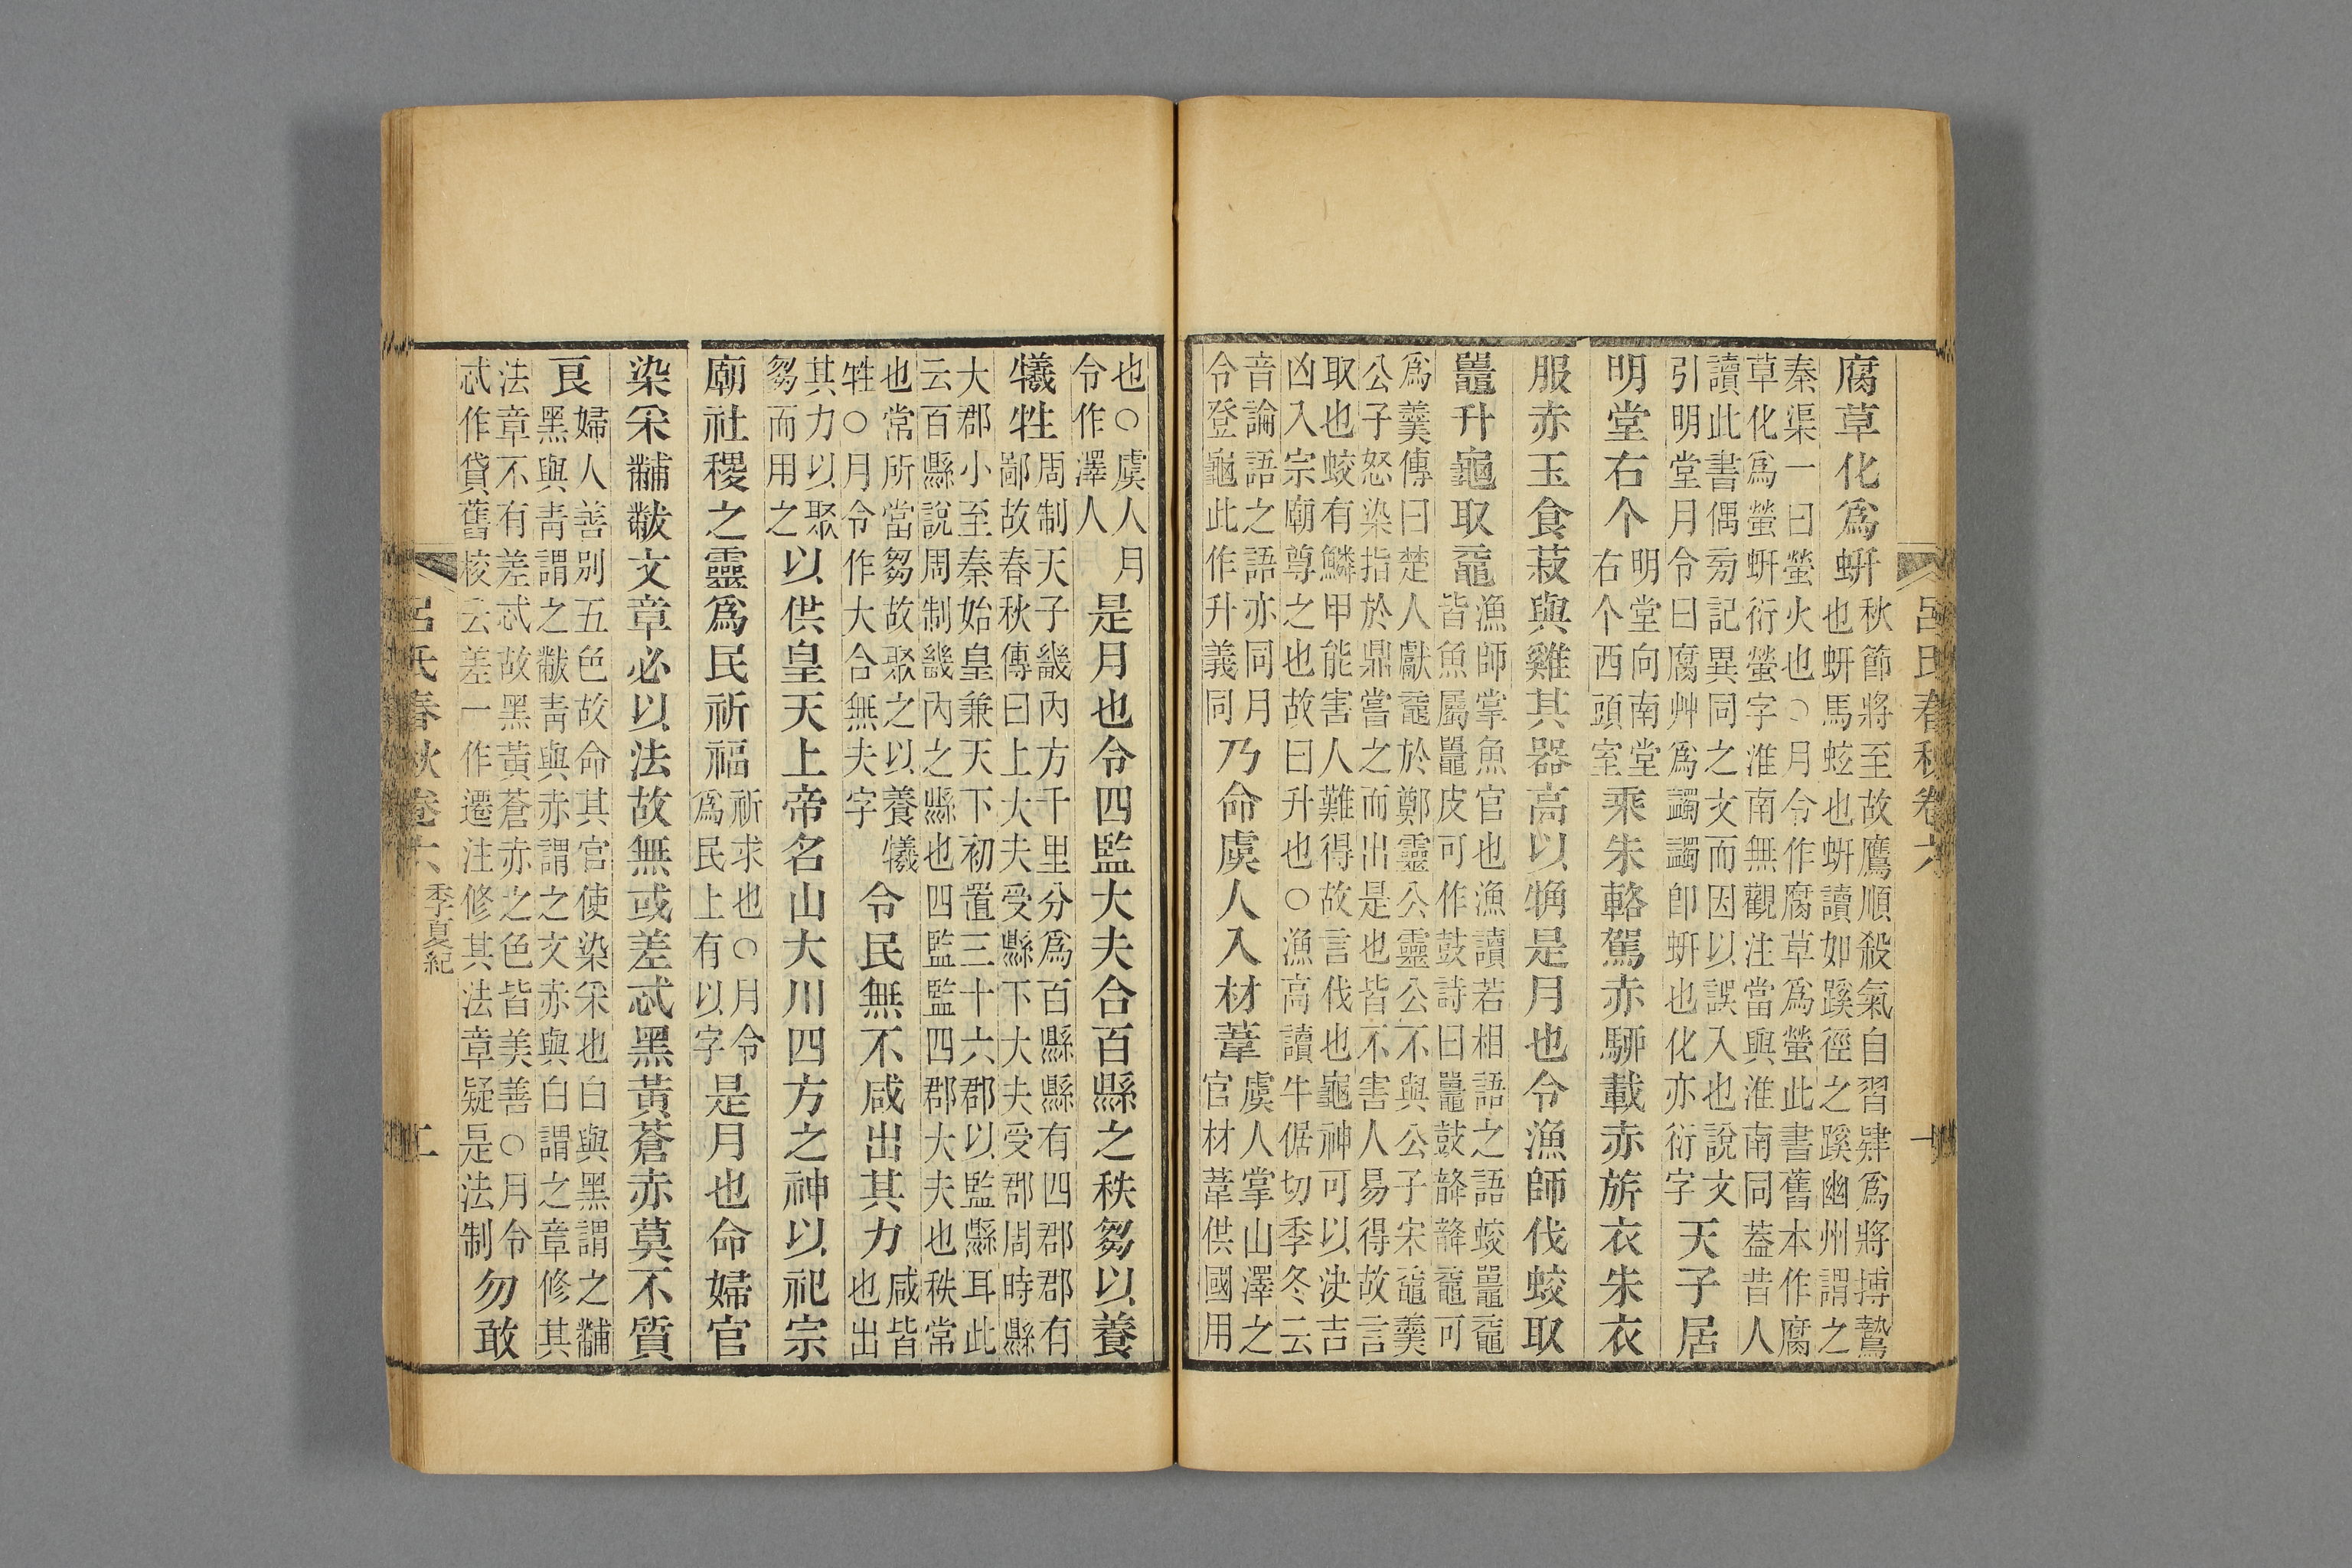 呂氏春秋卷六
一
腐草化爲蚈
秋節將至故鷹順殺氣自習肄爲將搏鷙
也蚈馬蚿也蚈讀如蹊徑之蹊幽州謂之
秦渠一曰螢火也○月令作腐草爲螢此書舊本作腐
草化爲螢蚈衍螢字淮南無觀注當與淮南同葢昔人
讀此書偶旁記異同之文而因以誤入也說文
引明堂月令曰腐艸爲蠲蠲卽蚈也化亦衍字
天子居
明堂右个
明堂向南堂
右个西頭室
乘朱輅駕赤駵載赤旂衣朱衣
服赤玉食菽與雞其器高以觕是月也令漁師伐蛟取
鼉升龜取黿
漁師掌魚官也漁讀若相語之語蛟鼉黿
皆魚屬鼉皮可作鼓詩曰鼉鼓韸韸黿可
爲羹傳曰楚人獻黿於鄭靈公靈公不與公子宋黿羹
公子怒染指於鼎嘗之而出是也皆不害人易得故言
取也蛟有鱗甲能害人難得故言伐也龜神可以決吉
凶入宗廟尊之也故曰升也○漁高讀牛倨切季冬云
音論語之語亦同月
令登龜此作升義同
乃命虞人入材葦
虞人掌山澤之
官材葦供國用
也○虞人月
令作澤人
是月也令四監大夫合百縣之秩芻以養
犧牲
周制天子畿內方千里分爲百縣縣有四郡郡有
鄙故春秋傳曰上大夫受縣下大夫受郡周時縣
大郡小至秦始皇兼天下初置三十六郡以監縣耳此
云百縣說周制畿內之縣也四監監四郡大夫也秩常
也常所當芻故聚之以養犧
牲○月令作大合無夫字
令民無不咸出其力
咸皆
也出
其力以聚
芻而用之
以供皇天上帝名山大川四方之神以祀宗
廟社稷之靈爲民祈福
祈求也○月令
爲民上有以字
是月也命婦官
染采黼黻文章必以法故無或差忒黑黃蒼赤莫不質
良
婦人善別五色故命其官使染采也白與黑謂之黼
黑與青謂之黻青與赤謂之文赤與白謂之章修其
法章不有差忒故黑黃蒼赤之色皆美善○月令
忒作貸舊校云差一作遷注修其法章疑是法制
勿敢
呂氏春秋卷六
季夏紀
二